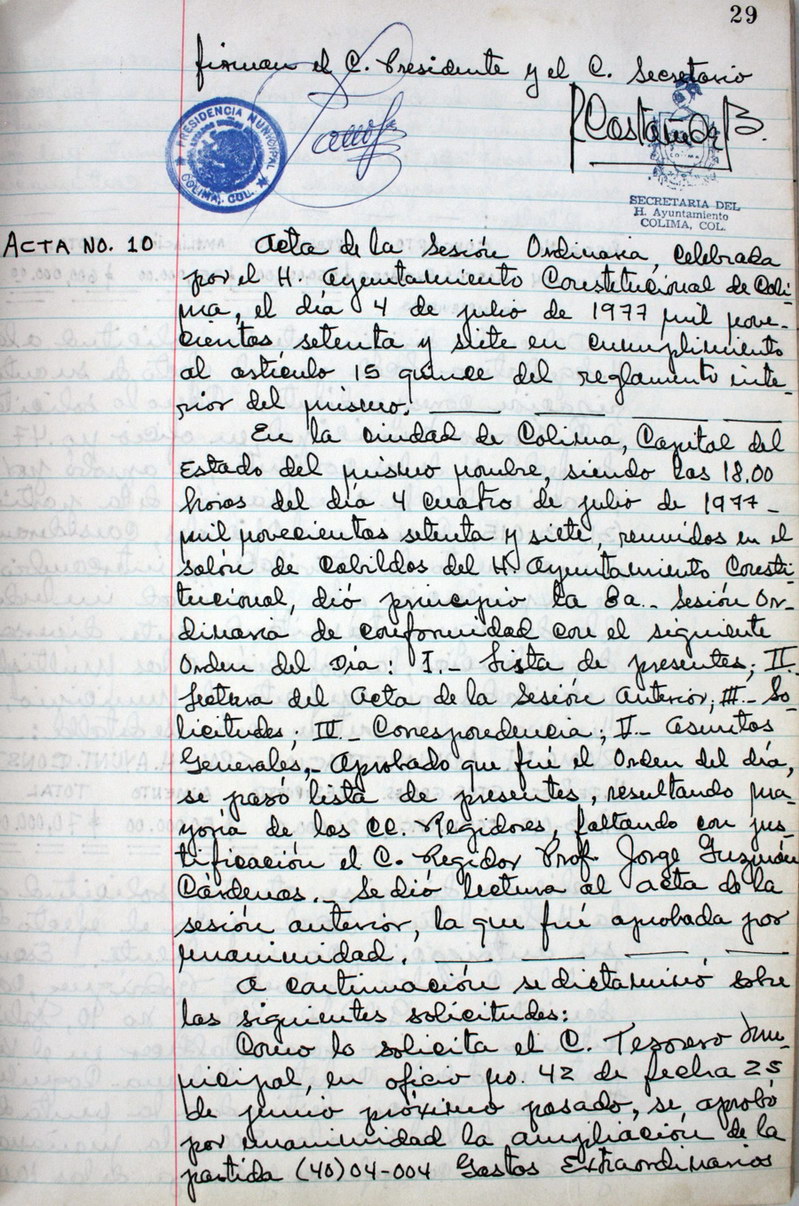 29
firman el C. Presidente y el C. Secretario
PRESIDENCIA MUNICIPAL
COLIMA, COL.
SECRETARIA DEL
H. Ayuntamiento
COLIMA, COL.
ACTA NO. 10
Acta de la Sesión Ordinaria, celebrada
por el H. Ayuntamiento Constitucional de Coli-
ma, el día 4 de julio de 1977 mil nove-
cientos setenta y siete en cumplimiento
al artículo 15 quince del reglamento inte-
rior del mismo.
En la ciudad de Colima, Capital del
Estado del mismo nombre, siendo las 18.00
horas del día 4 cuatro de julio de 1977 -
mil novecientos setenta y siete, reunidos en el
salón de Cabildos del H. Ayuntamiento Consti-
tucional, dió principio la 8a.- Sesión Or-
dinaria de conformidad con el siguiente
Orden del Día: I.- Lista de presentes; II.
Lectura del Acta de la Sesión Anterior; III.- So-
licitudes; IV Correspondencia; V.- Asuntos
Generales.- Aprobado que fué el Orden del día,
se pasó lista de presentes, resultando ma-
yoría de los CC. Regidores, faltando con jus-
tificación el C. Regidor Prof. Jorge Guzmán
Cárdenas.- Se dió lectura al acta de la
sesión anterior, la que fué aprobada por
unanimidad.
A continuación se dictaminó sobre
las siguientes solicitudes:
Como lo solicita el C. Tesorero Mu-
nicipal, en oficio no. 42 de fecha 25
de junio próximo pasado, se aprobó
por unanimidad la ampliación de la
partida (40)04-004 Gastos Extraordinarios